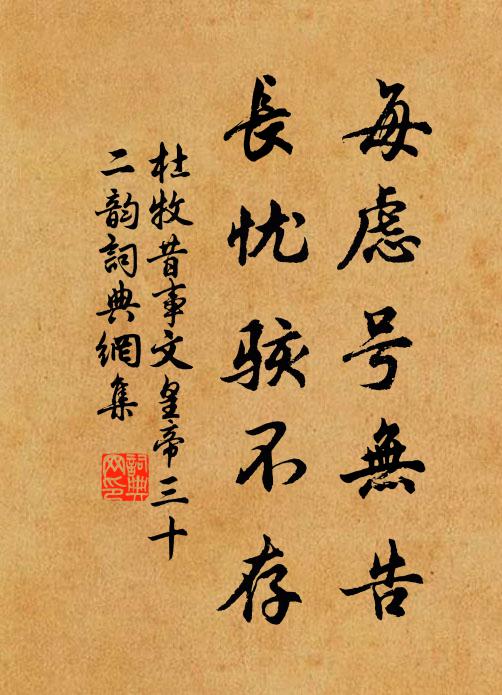 每虑号無告
長忧骇不存
杜牧昔事文皇帝三十
二韵詞典網集
詞典
网印